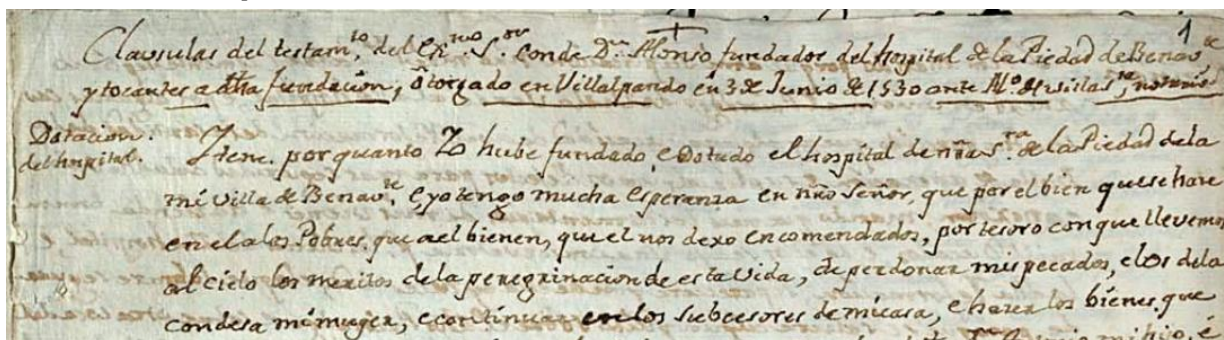 1
Clausulas del testam.to del Ex.mo S.or Conde D.n Alonso fundador del hospital de la Piedad de Benav.te
y tocantes a dha fundacion, otorgado en Villalpando en 3 de Junio de 1530 ante notario
Dotacion. Itenc. por quanto Yo hube fundado, e Dotado el hospital de nña S.ra de la Piedad de la
del hospital. mi Villa de Benav.te e yo tengo mucha esperanza en nño Señor, que por el bien que se hace
en el a los Pobres, que a el bienen, que el nos dexo encomendados, por tesoro con que llevemos
al cielo los meritos de la peregrinacion de esta vida, de perdonar mis pecados, e los de la
condesa mi muger, e continuar en los subcesores de mi casa, e hacer los bienes que
mi hijo, é